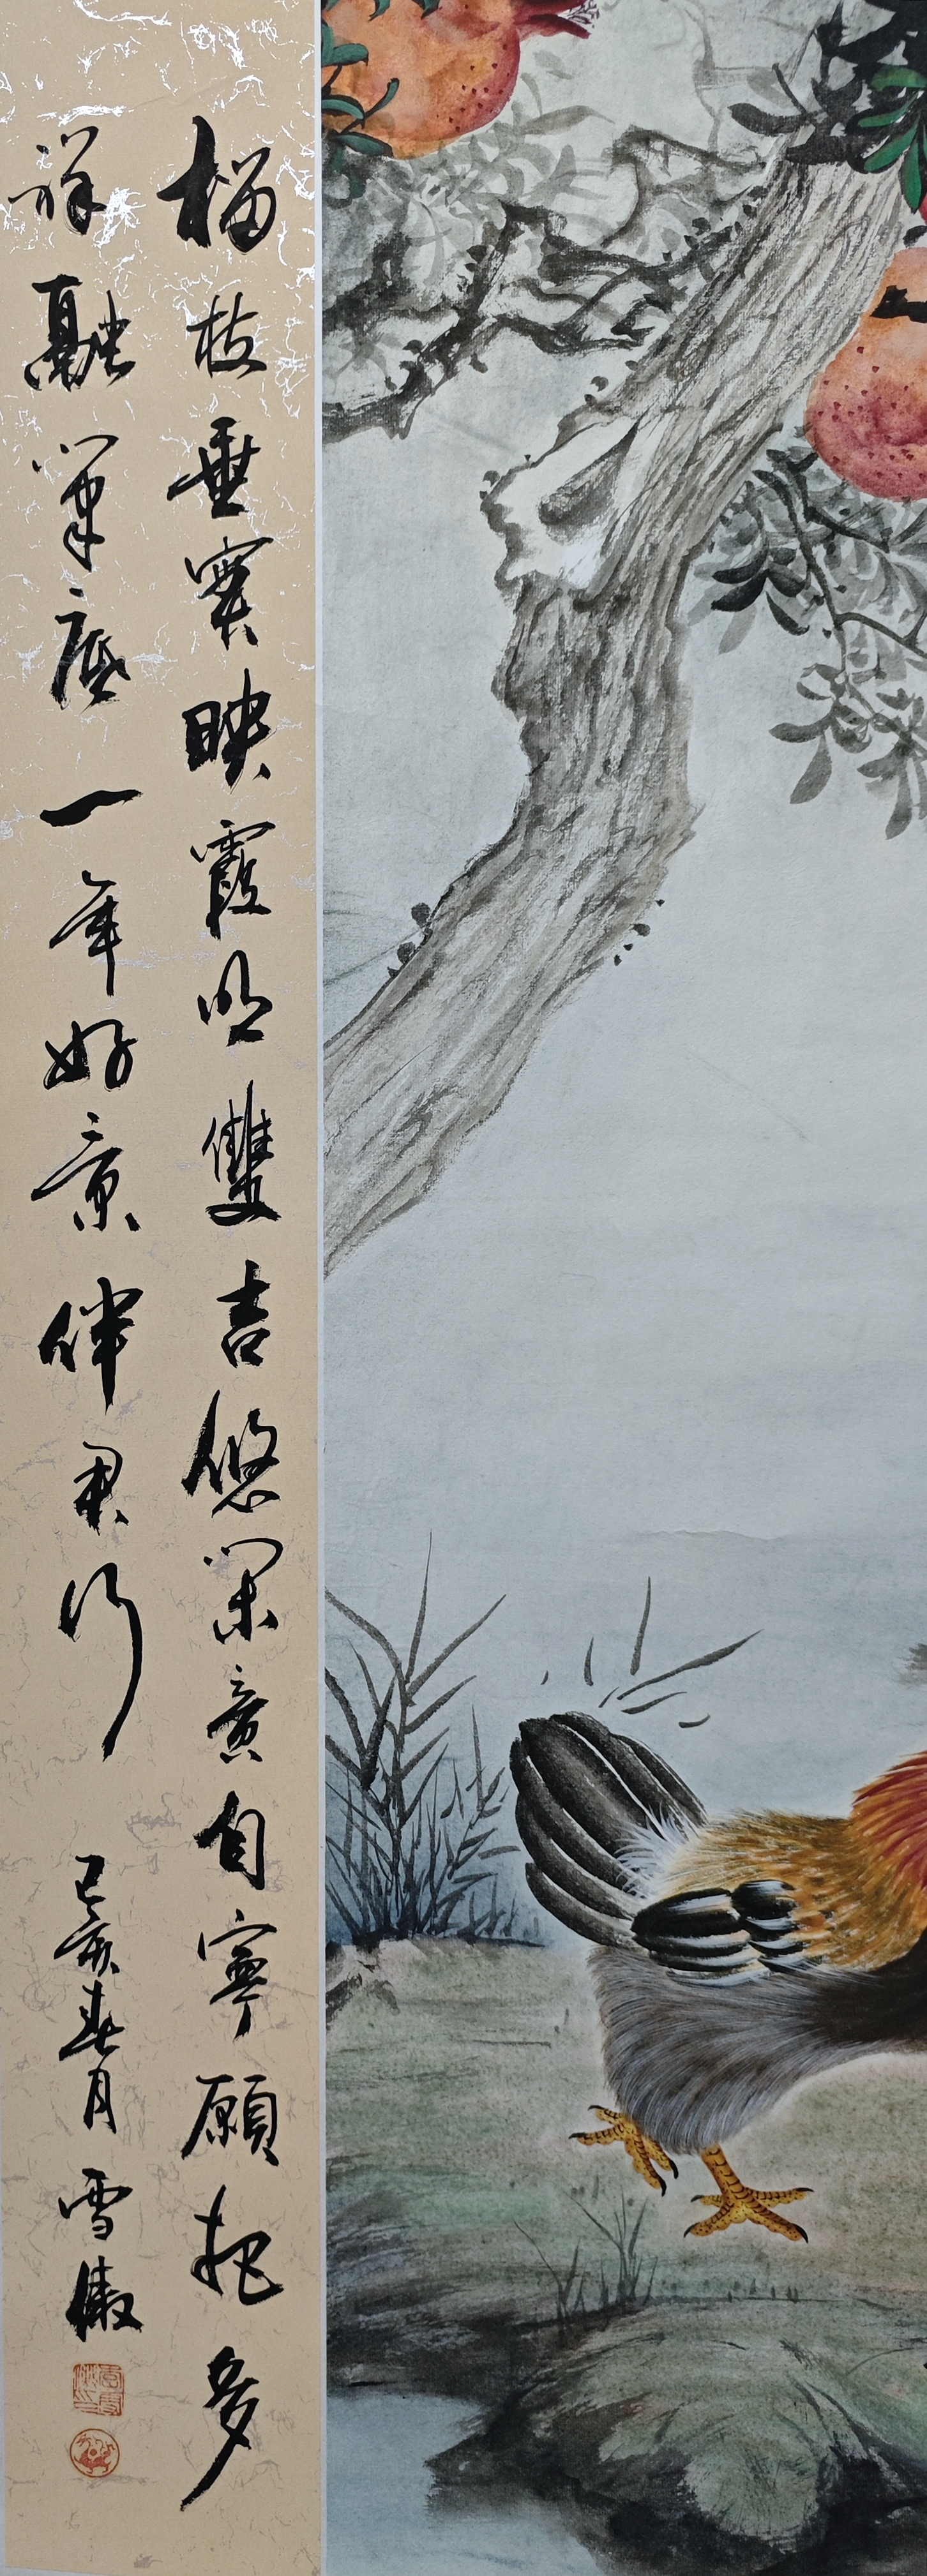 榴枝垂實映霞明雙吉悠閑意自寧願托多
祥融筆底一年好景伴君行
己亥春月雪傲